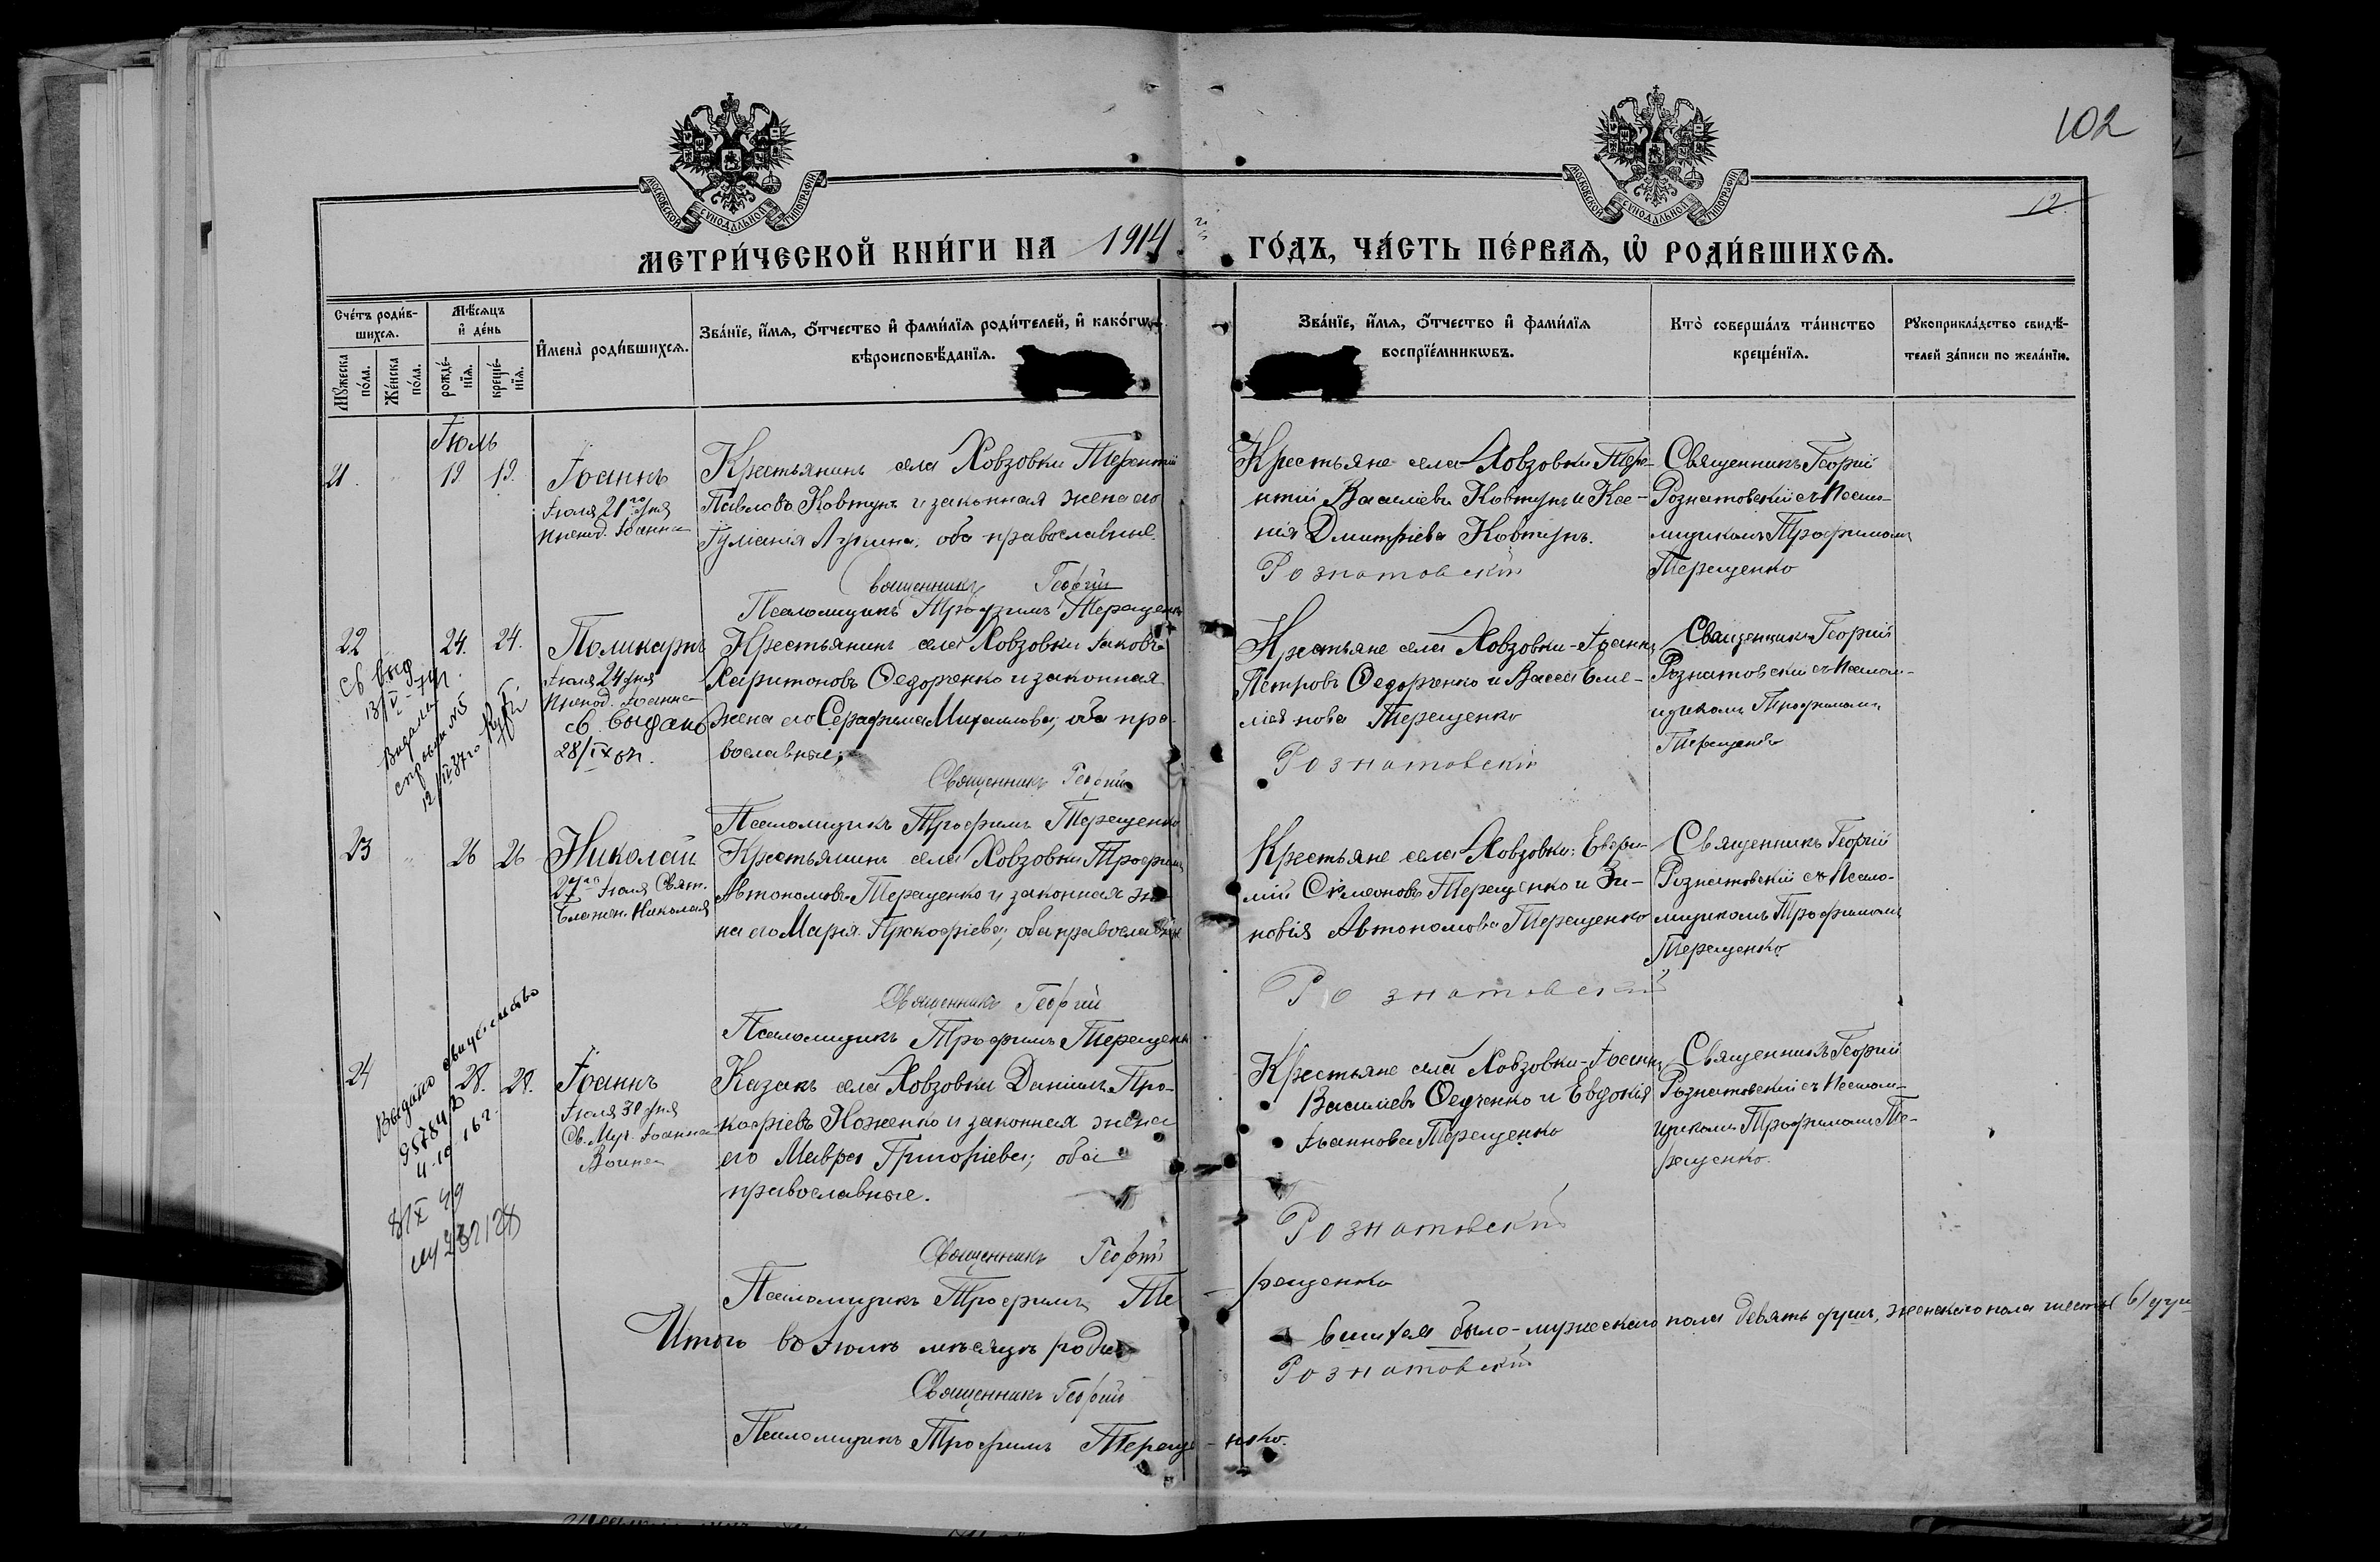 102
12
МОСКОВСКОЙ СѴНОДАЛЬНОЙ ТИПОГРАФІИ
МОСКОВСКОЙ СѴНОДАЛЬНОЙ ТИПОГРАФІИ
МЕТРИ́ЧЕСКОЙ КНИ́ГИ НА 1914 ГО́ДЪ, ЧА́СТЬ ПЕ́РВАѦ, Ѡ҆ РОДИ́ВШИХСѦ.
Сче́тъ роди́в-
шихсѧ.
Мꙋ́жеска
по́ла.
Же́нска
по́ла.
Мѣ́сѧцъ
и҆ де́нь
рожде́-
нїѧ.
креще́-
нїѧ.
И҆мена̀ роди́вшихсѧ.
Зва́нїе, и҆́мѧ, ѻ҆́тчество и҆ фами́лїѧ роди́телей, и҆ како́гѡ
вѣроисповѣ́данїѧ.
Зва́нїе, и҆́мѧ, ѻ҆́тчество и҆ фами́лїѧ
воспрїе́мникѡвъ.
Кто̀ соверша́лъ та́инство
креще́нїѧ.
Рꙋкоприкла́дство свидѣ́-
телей за́писи по жела́нїю.
Іюль
21. 19. 19. Іоаннъ
Іюля 21го дня
препод. Іоанна
Крестьянинъ села Ховзовки Терентій
Павловъ Ковтунъ и законная жена его
оба православные.
Священникъ Георгій
Псаломщикъ Трофимъ Терещенко
Крестьяне села Ховзовки Тере-
нтій Васильевъ Ковтунъ и Ксе-
нія Дмитріева Ковтунъ.
Рознатовскій
Священникъ Георгій
Рознатовскій съ Псало-
мщикомъ Трофимомъ
Терещенко
22 24. 24. Поликарпъ
Іюля 24 дня
препод. Іоанна
св. выдано
28/IX
Св выд
13/V
12/IV 37го
Крестьянинъ села Ховзовки Іаковъ
Харитоновъ Федорченко и законная
жена его Серафима Михаилова; оба пра-
вославные;
Священникъ Георгій
Псаломщикъ Трофимъ Терещенко
Крестьяне села Ховзовки-Іоаннъ
Петровъ Федорченко и Васса Еме-
ліанова Терещенко
Рознатовскій
Священникъ Георгій
Рознатовскій съ Псалом-
щикомъ Трофимомъ
Терещенко
23 26 26 Николай
27го Іюля Свят.
Блажен. Николая
Крестьянинъ села Ховзовки Трофимъ
Автономовъ Терещенко и законная же-
на его Марія Прокофіева; оба православные
Священникъ Георгій
Псаломщикъ Трофимъ Терещенк
Крестьяне села Ховзовки: Евфи-
мій Симеоновъ Терещенко и Зи-
новія Автономова Терещенко
Рознатовскій
Священникъ Георгій
Рознатовскій съ Псало-
мщикомъ Трофимомъ
Терещенко
24 28. 28. Іоаннъ
Іюля 30 дня
Св. Муч. Іоанна
Воина
Выдано свидетельство
Казакъ села Ховзовки Даніилъ Про-
кофіевъ Ноженко и законная жена
его Мавра Григоріева; оба
православные.
Священникъ Георгій
Псаломщикъ Трофимъ Те
рещенко
Крестьяне села Ховзовки-Іоаннъ
Васильевъ Федченко и Евдокія
Іоаннова Терещенко
Рознатовскій
Священникъ Георгій
Рознатовскій съ Псалом-
щикомъ Трофимомъ Те-
рещенко.
Итого во Іюлѣ мѣсяцѣ роди
вшихся было-мужескаго пола девять душъ, женскаго пола шесть
Священникъ Георгій
Рознатовскій
Псаломщикъ Трофимъ Тереще-
нко.